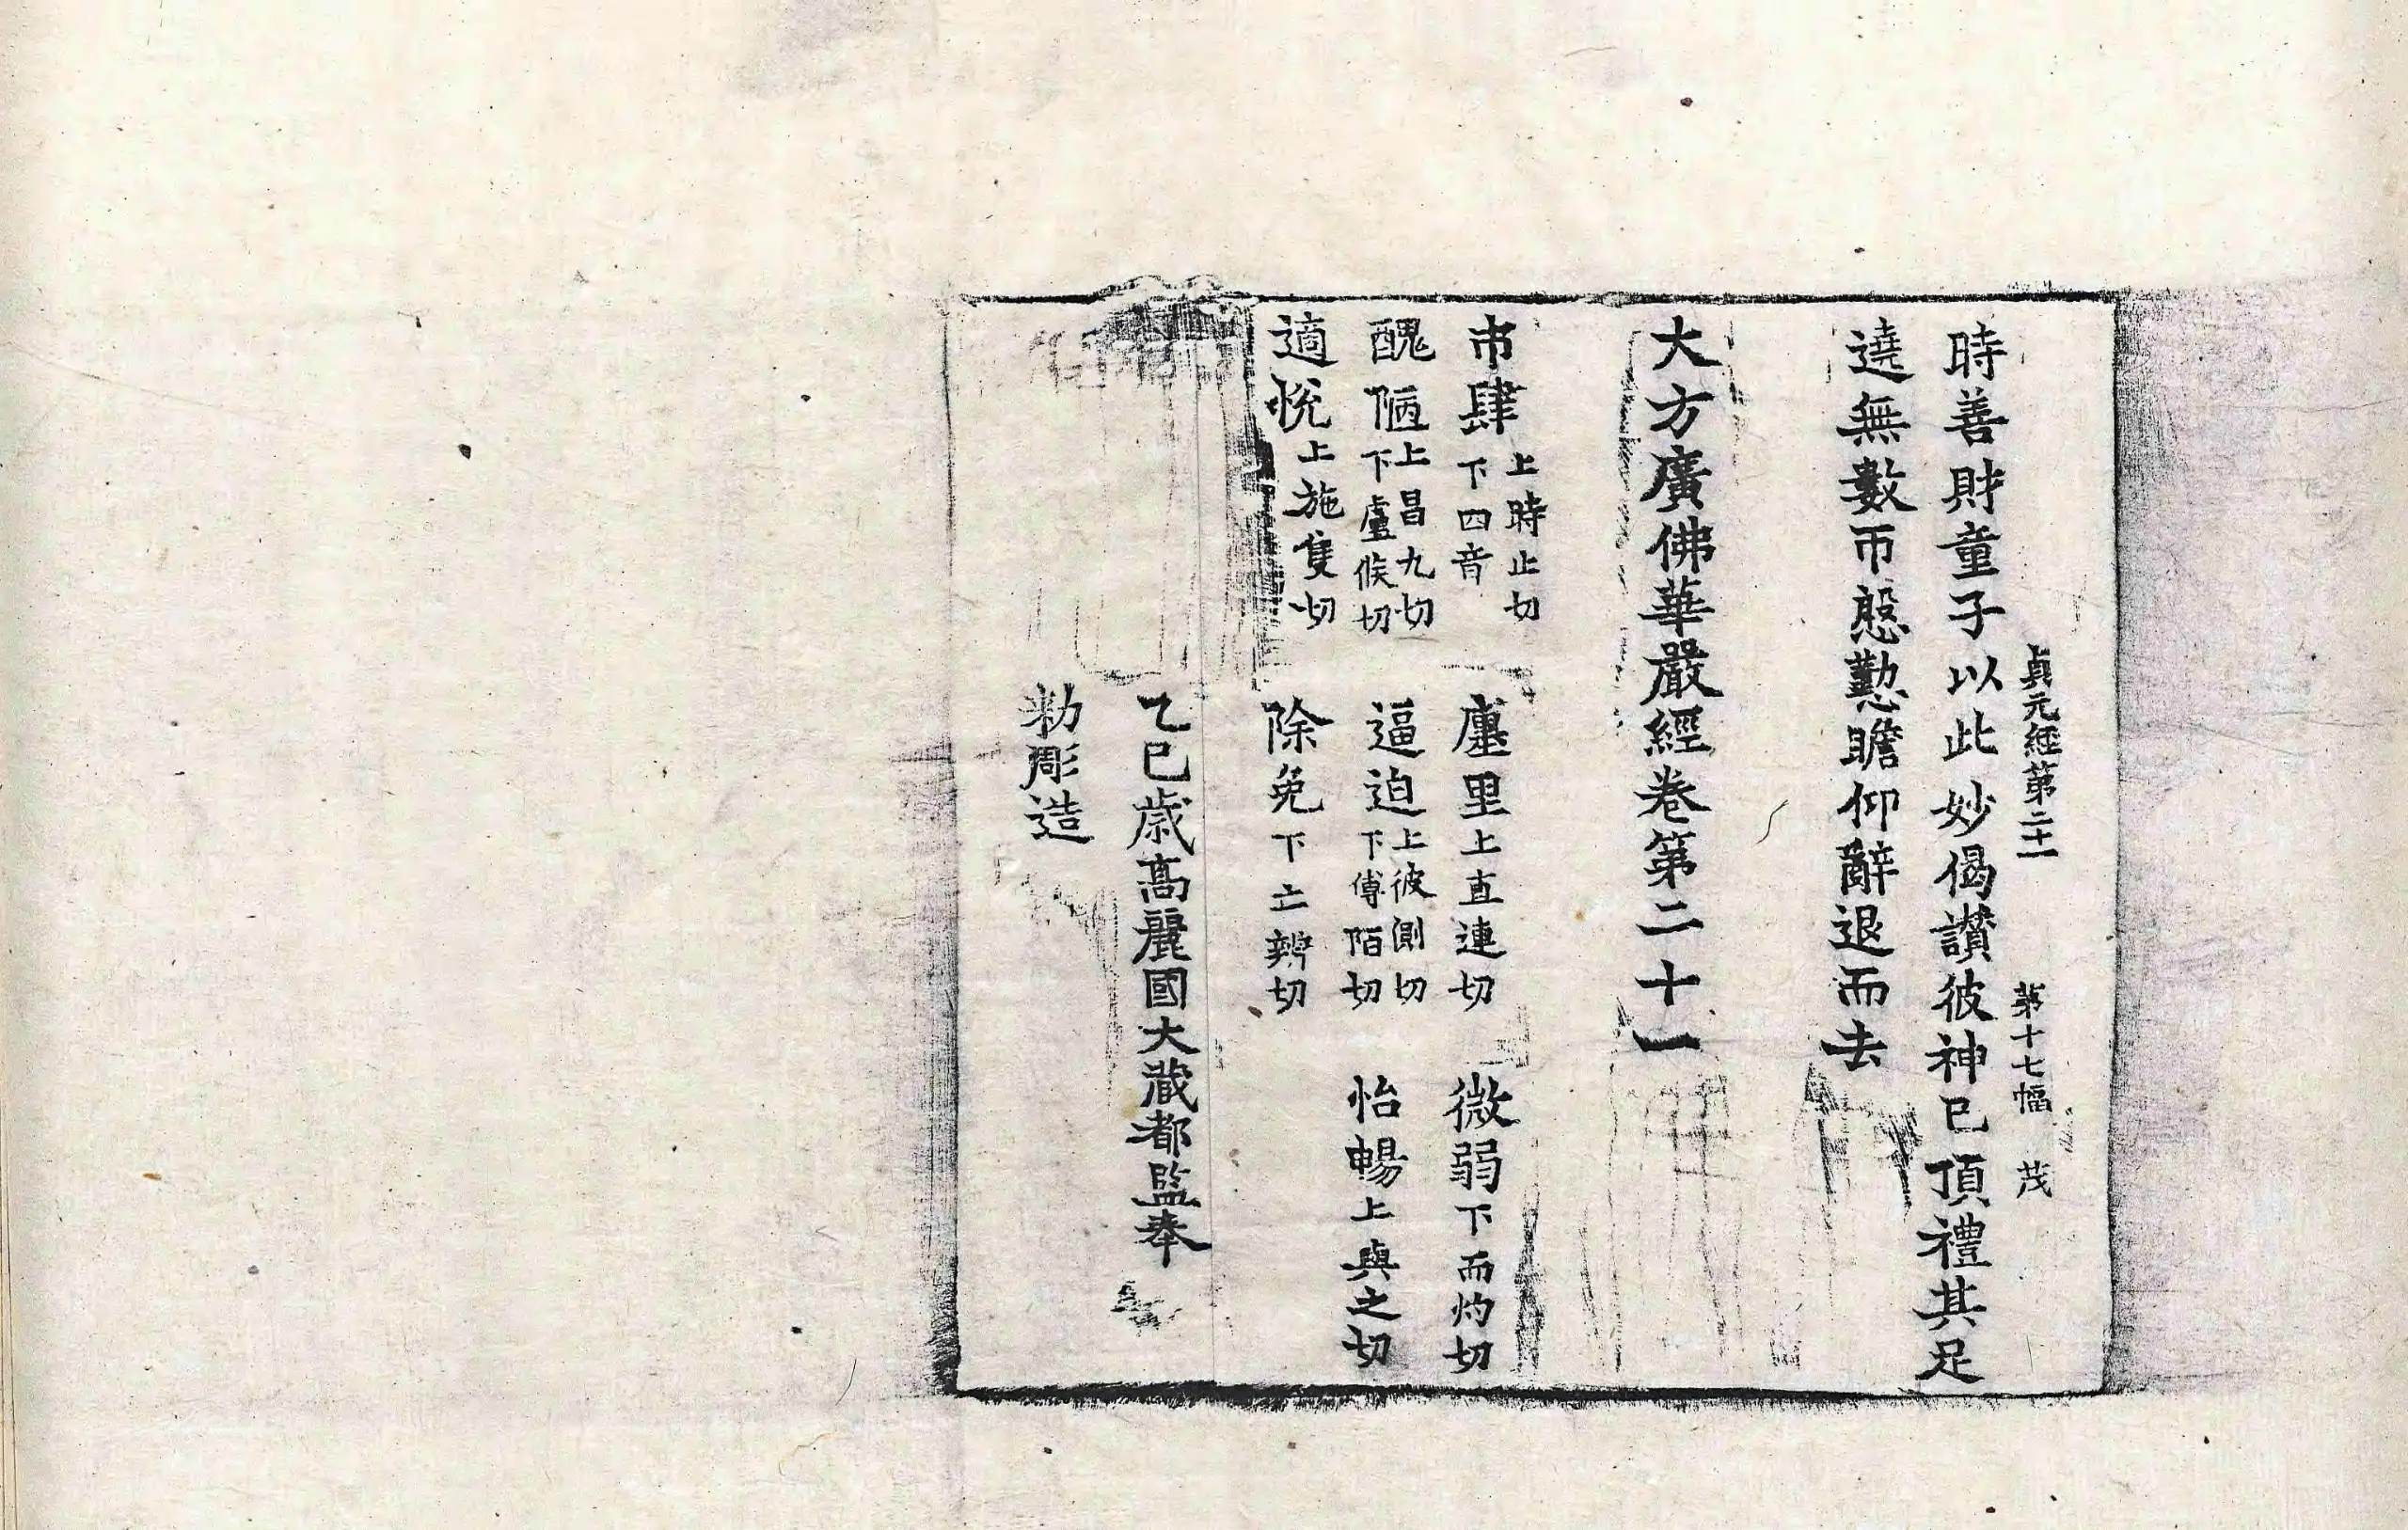 貞元經第二十一 第十七幅 茂
時善財童子以此妙偈讃彼神已頂禮其足
遶無數帀慇懃瞻仰辭退而去
大方廣佛華嚴經卷第二十一
市肆上時止切下四音 廛里上直連切 微弱下而灼切
醜陋上昌九切下盧候切 逼迫上彼側切下傅陌切 怡暢上與之切
適悅上施隻切 除免下亡辨切
乙巳歳高麗國大藏都監奉
勑彫造